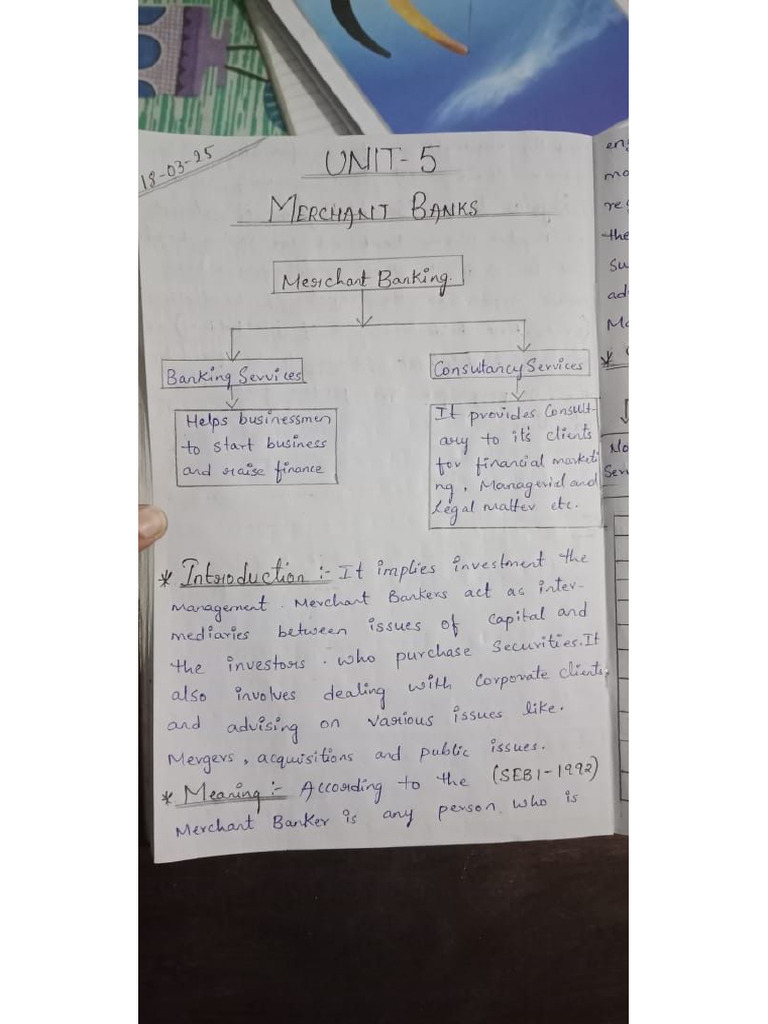 18-03-25
UNIT-5
MERCHANT BANKS
Merchant Banking.
Banking Services
Consultancy Services
Helps businessmen
to start business
and raise finance
It provides Consult-
ary to it's clients
for financial marketi
ng, Managerial and
Legal matter etc.
* Introduction :- It implies investment the
management. Merchant Bankers act as inter-
mediaries between issues of capital and
the investors. who purchase securities. It
also involves dealing with corporate clients,
and advising on various issues like.
Mergers, acquisitions and public issues.
* Meaning :- According to the (SEBI-1992)
Merchant Banker is any person who is
en
mo
re
the
su
ad
Mo
*
No
Ser